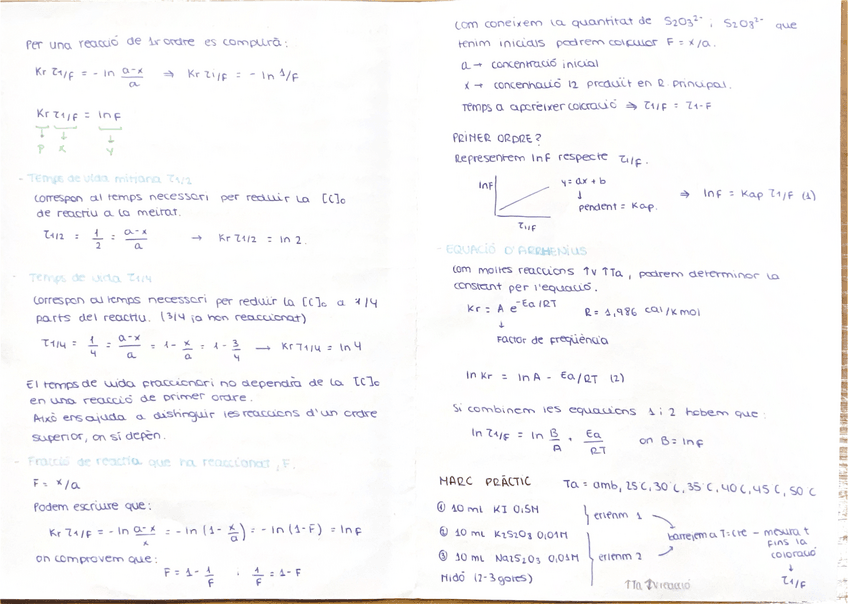 Per una reacció de 1r ordre es complirà:
Kr τ1/F = - ln (a-x)/a ⇒ Kr τ1/F = - ln 1/F
Kr τ1/F = ln F
↓ ↓ ↓
P X Y
- Temps de vida mitjana τ1/2
Correspon al temps necessari per reduir la [C]o
de reactiu a la meitat.
τ1/2 = 1/2 = (a-x)/a → Kr τ1/2 = ln 2.
- Temps de vida τ1/4
Correspon al temps necessari per reduir la [C]o a 1/4
parts del reactiu. (3/4 ja han reaccionat)
τ1/4 = 1/4 = (a-x)/a = 1 - x/a = 1 - 3/4 → Kr τ1/4 = ln 4
El temps de vida fraccionari no dependrà de la [C]o
en una reacció de primer ordre.
Això ens ajuda a distinguir les reaccions d'un ordre
superior, on sí depèn.
- Fracció de reactiu que ha reaccionat, F.
F = x/a
Podem escriure que:
Kr τ1/F = - ln (a-x)/x = - ln (1 - x/a) = - ln (1-F) = ln F
on comprovem que:
F = 1 - 1/F , 1/F = 1 - F
Com coneixem la quantitat de S2O3²⁻ i S2O3²⁻ que
tenim inicials podrem calcular F = x/a.
a → concentració inicial
x → concentració I2 produït en R. principal.
Temps a aparèixer coloració ⇒ τ1/F = τ1-F
PRIMER ORDRE?
Representem lnF respecte τ1/F.
lnF
y = ax + b
↓
pendent = Kap.
⇒ lnF = Kap τ1/F (1)
τ1/F
- EQUACIÓ D'ARRHENIUS
Com moltes reaccions ↑v ↑Ta, podrem determinar la
constant per l'equació.
Kr = A e^-Ea/RT R = 1,986 cal/K mol
↓
Factor de freqüència
ln Kr = ln A - Ea/RT (2)
Si combinem les equacions 1 i 2 trobem que:
ln τ1/F = ln B/A + Ea/RT on B = ln F
MARC PRÀCTIC Ta = amb, 25 C, 30 C, 35 C, 40 C, 45 C, 50 C
① 10 mL KI 0,5M
erlenm 1
② 10 mL K2S2O3 0,01M
③ 10 mL Na2S2O3 0,01M
erlenm 2
Midó (2-3 gotes)
barregem a T=cte - mesura t
fins la
coloració
↓
τ1/F
↑Ta ↑v reacció